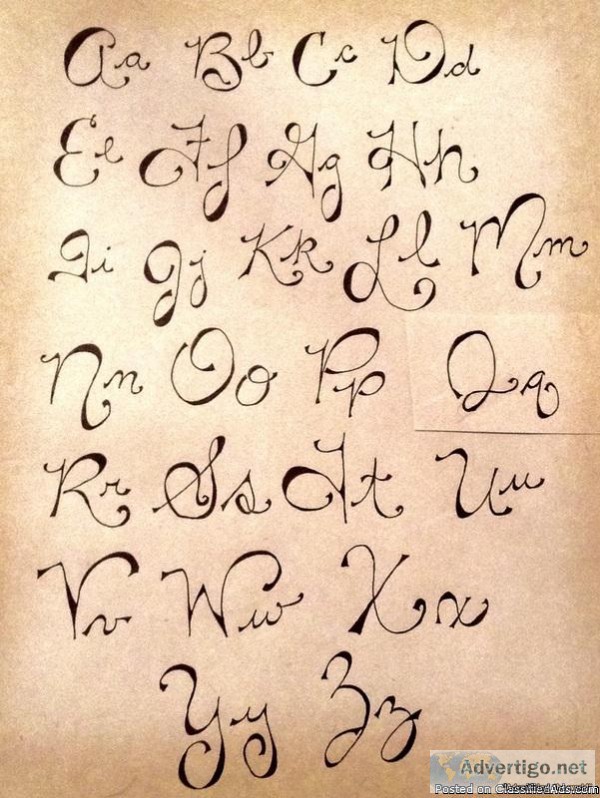 Aa Bb Cc Dd
Ee Ff Gg Hh
Ii Jj Kk Ll Mm
Nn Oo Pp Qq
Rr Ss Tt Uu
Vv Ww Xx
Yy Zz
Advertigo.net
Posted on ClassifiedAds.com